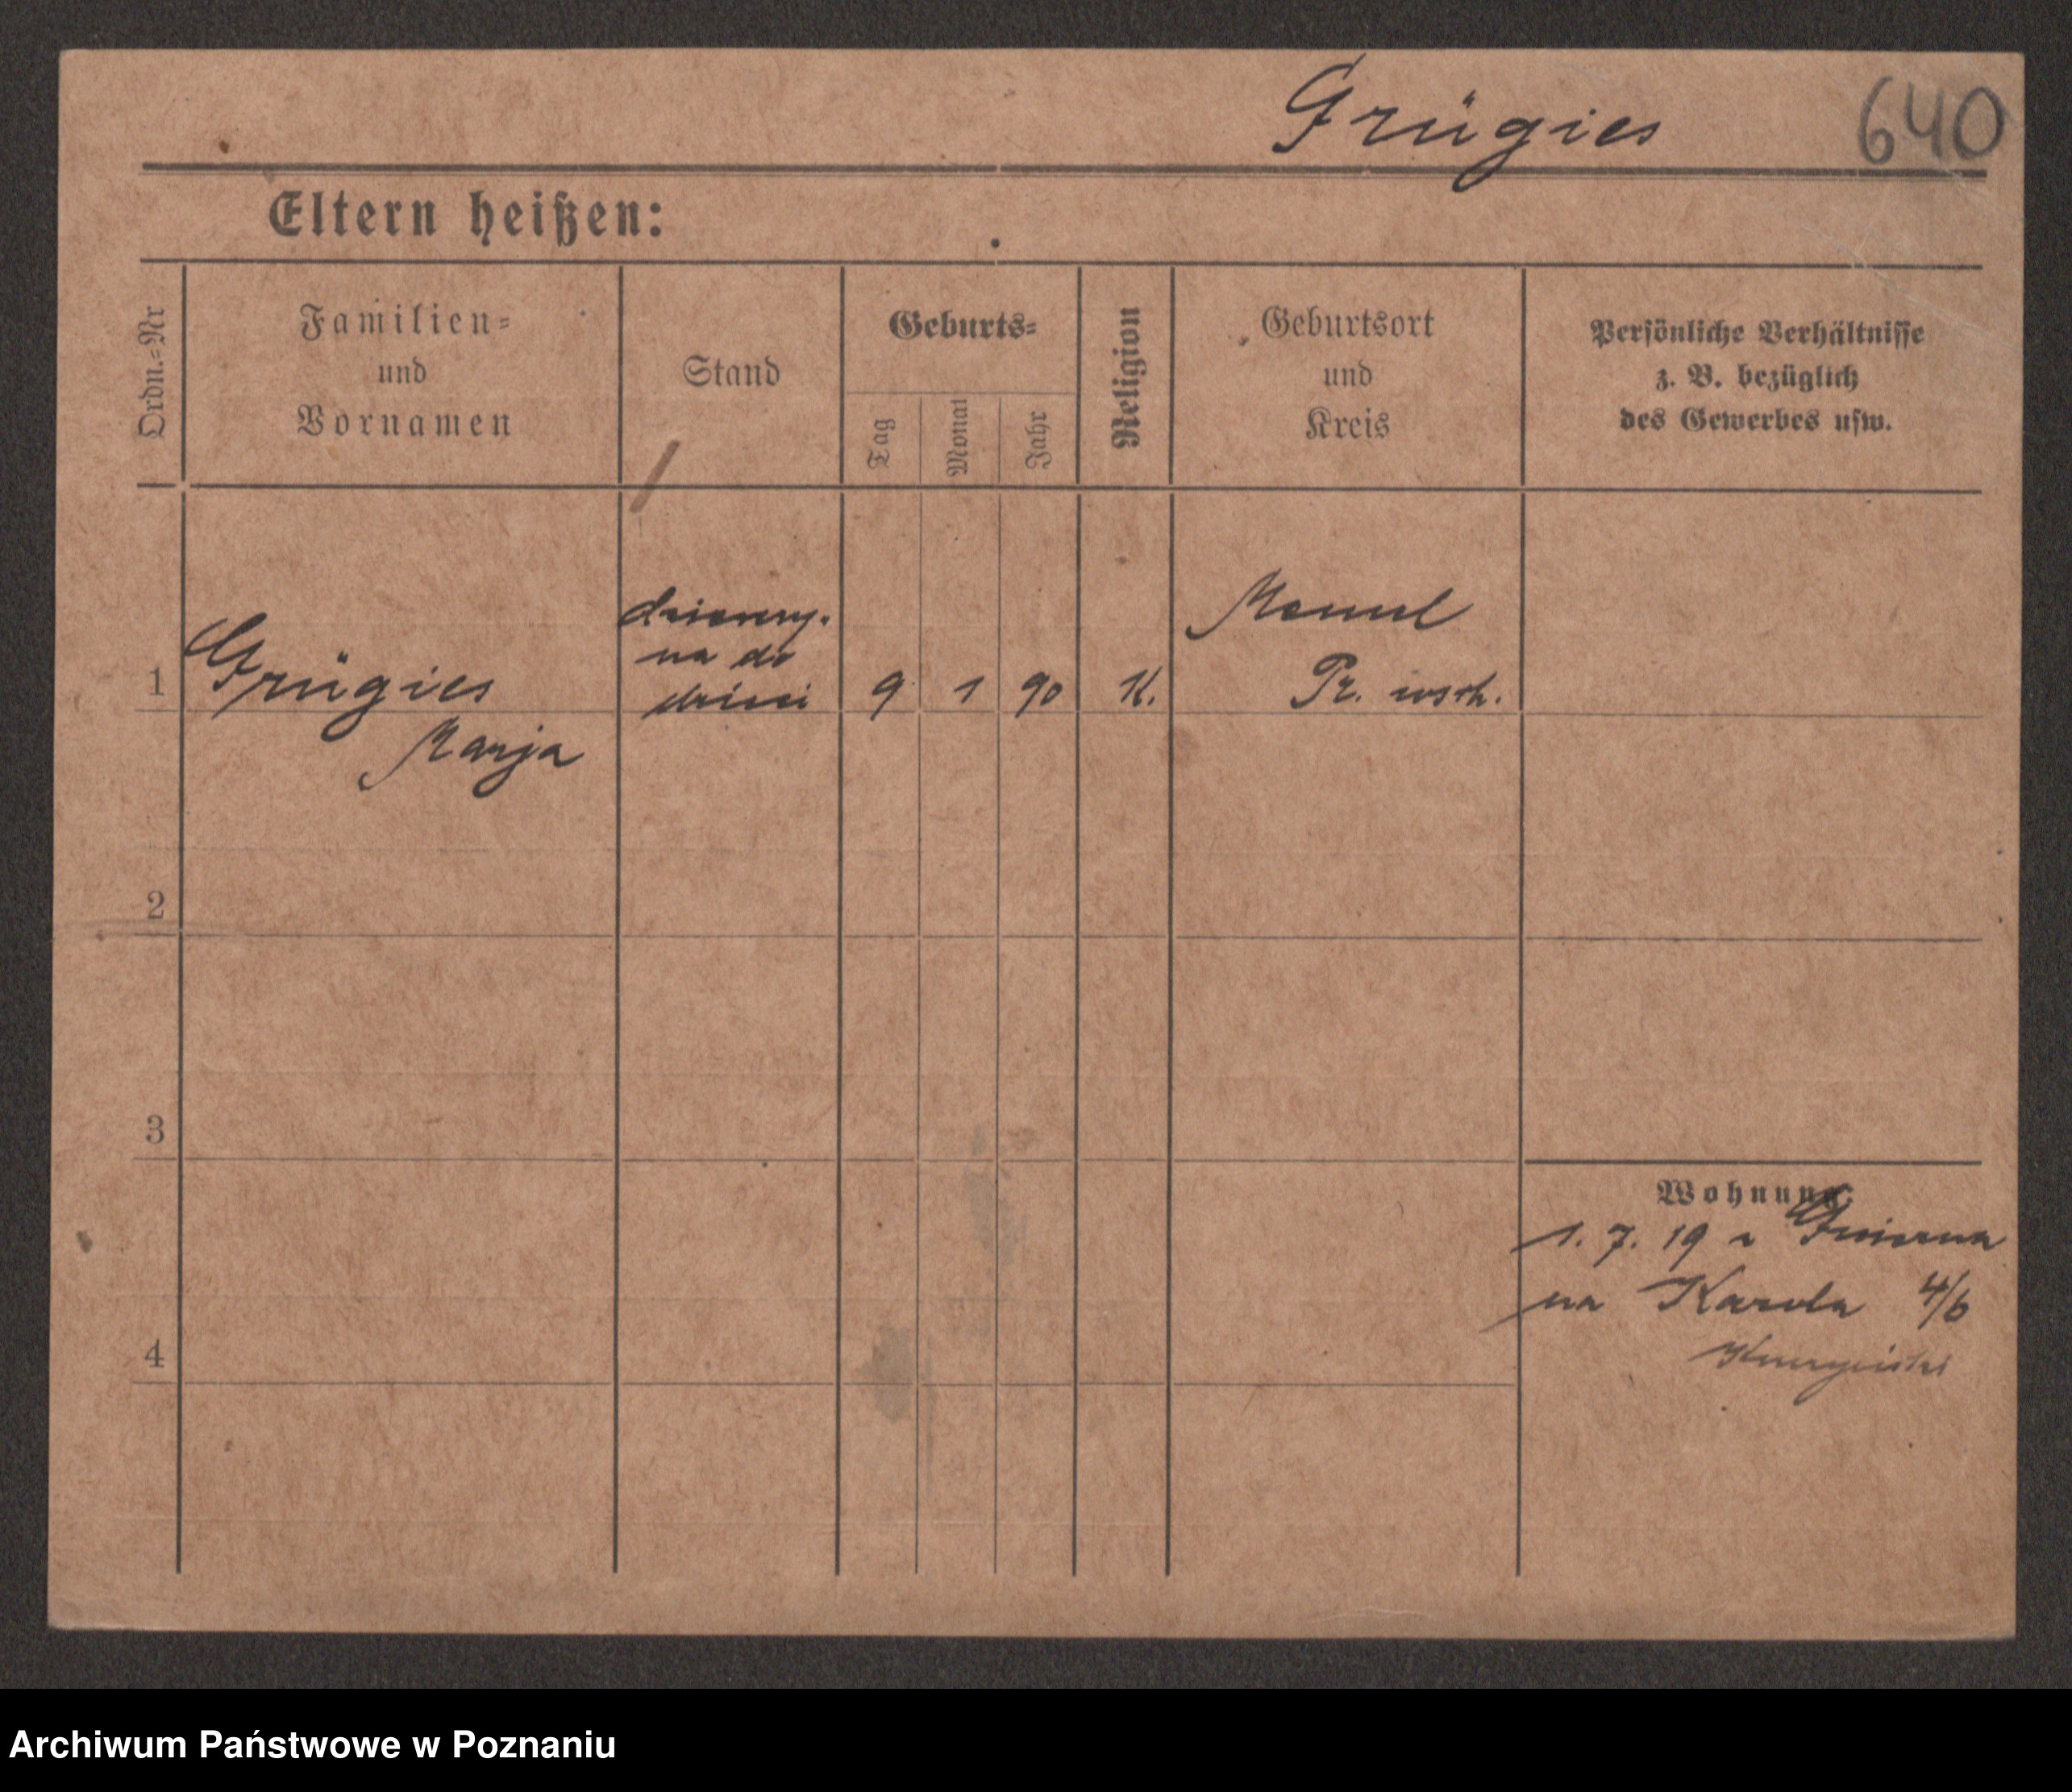 Grügies 640
Eltern heißen:
Ordn.-Nr
Familien-
und
Vornamen
Stand
Geburts-
Tag
Monat
Jahr
Religion
Geburtsort
und
Kreis
Persönliche Verhältnisse
z. B. bezüglich
des Gewerbes usw.
1
Grügies
Marja
dziewczy-
na do
dzieci
9
1
90
K.
Memel
Pr. wsch.
2
3
4
Wohnung:
1. 7. 19 z Gniezna
na Karola 4/6
Archiwum Państwowe w Poznaniu